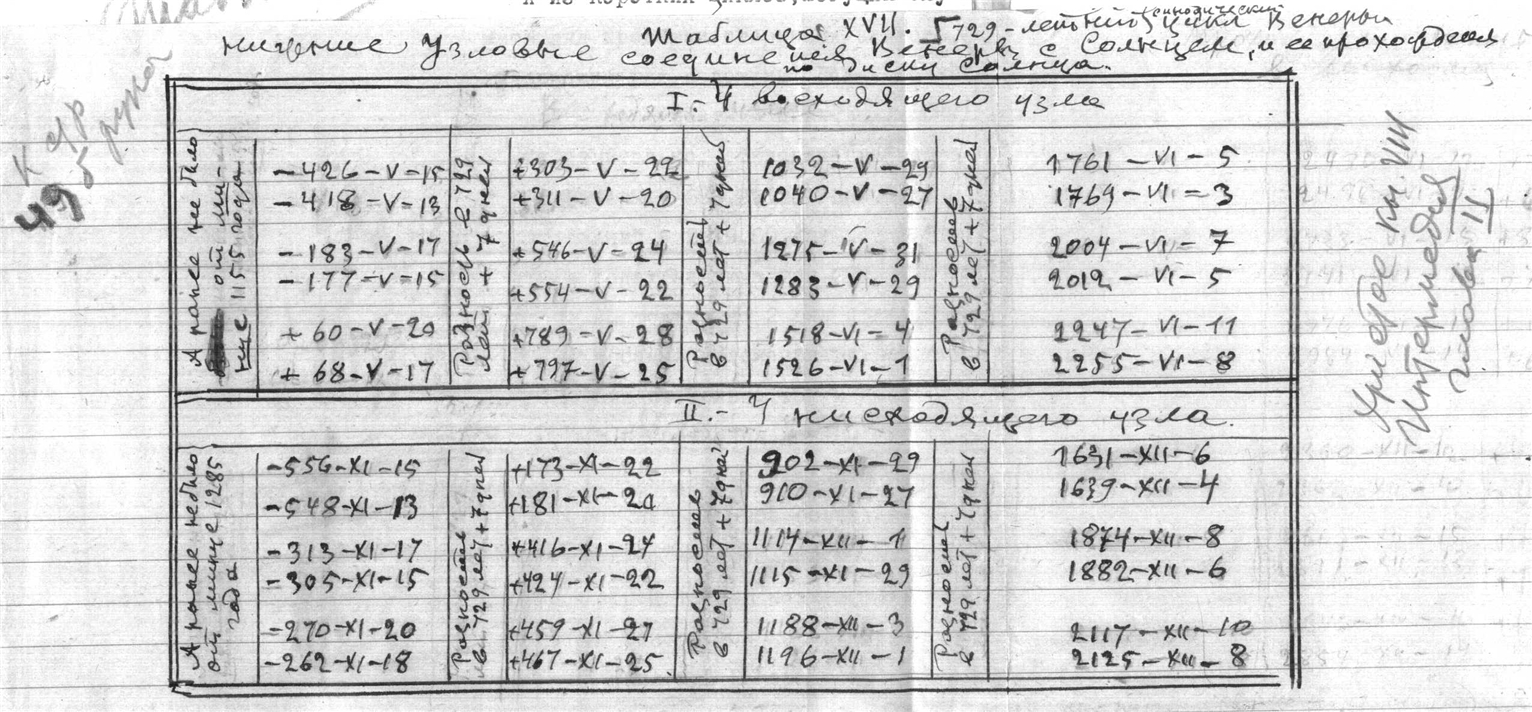 и из коротких циклов,
Таблица XVII. 729-летний периодический цикл Венеры
нижние узловые соединения Венеры с Солнцем, и ее прохождения
по диску Солнца.
К стр
49 рукоп
I.- У восходящего узла
А ранее не было
от минус 1155 года
-426-V-15
-418-V-13
-183-V-17
-177-V-15
+60-V-20
+68-V-17
Разность в 729
лет + 7 дней
+303-V-22
+311-V-20
+546-V-24
+554-V-22
+789-V-28
+797-V-25
Разность
в 729 лет + 7 дней
1032-V-29
1040-V-27
1275-V-31
1283-V-29
1518-VI-4
1526-VI-1
Разность
в 729 лет + 7 дней
1761-VI-5
1769-VI-3
2004-VI-7
2012-VI-5
2247-VI-11
2255-VI-8
II.- У нисходящего узла.
А раньше не было
от минус 1285
года
-556-XI-15
-548-XI-13
-313-XI-17
-305-XI-15
-270-XI-20
-262-XI-18
Разность
в 729 лет + 7 дней
+173-XI-22
+181-XI-20
+416-XI-24
+424-XI-22
+459-XI-27
+467-XI-25
Разность
в 729 лет + 7 дней
902-XI-29
910-XI-27
1114-XII-1
1115-XI-29
1188-XII-3
1196-XII-1
Разность
в 729 лет + 7 дней
1631-XII-6
1639-XII-4
1874-XII-8
1882-XII-6
2117-XII-10
2125-XII-8
Христос кн. VIII
Интермедия
глава II